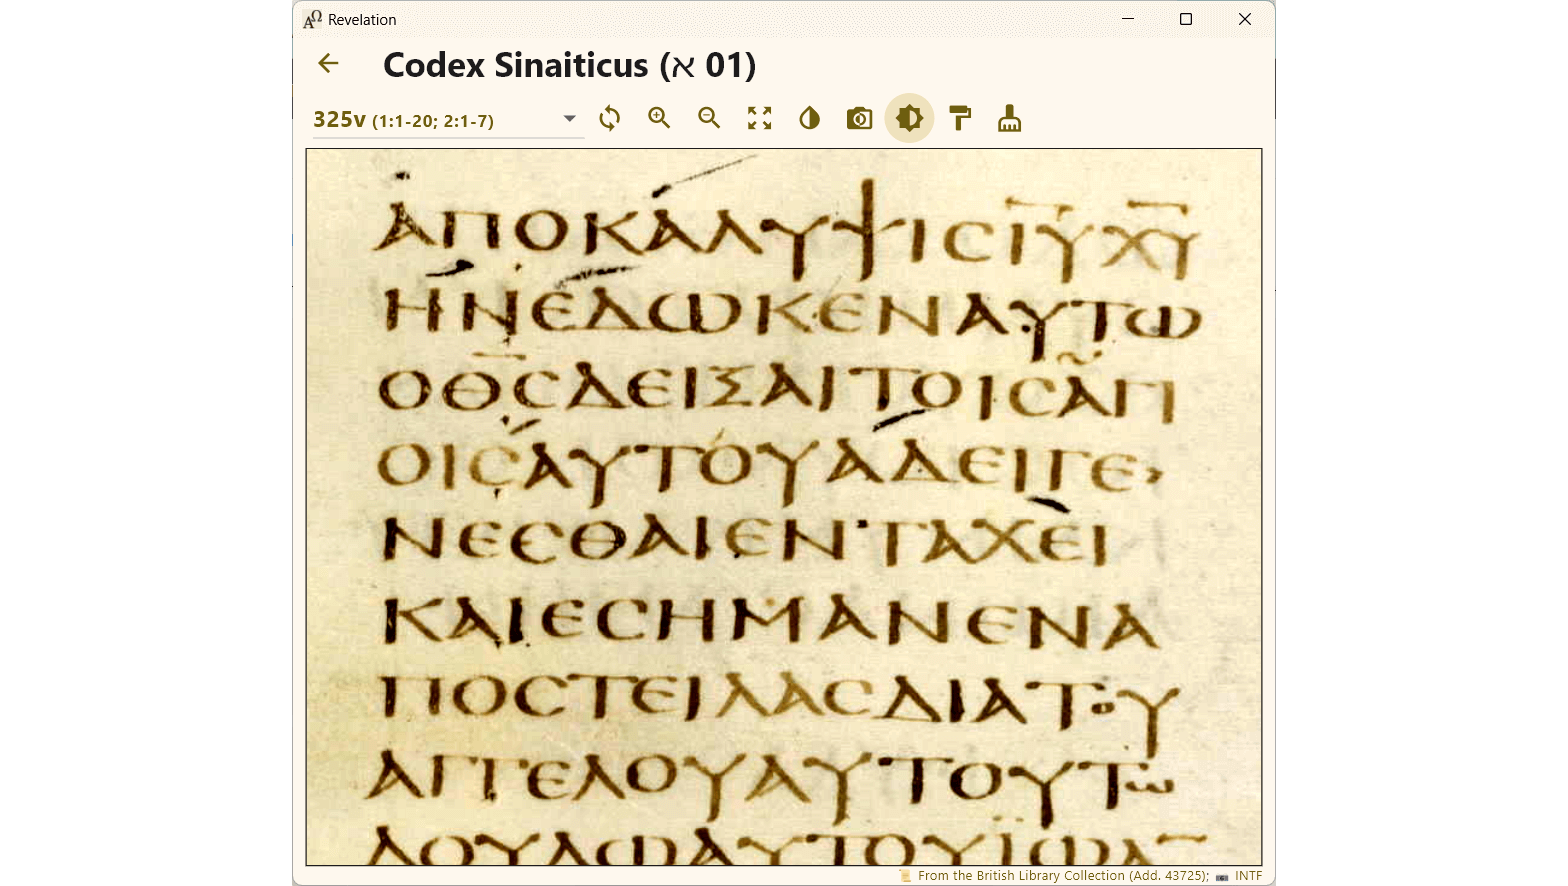 Revelation
Codex Sinaiticus (א 01)
325v (1:1-20; 2:1-7)
ΑΠΟΚΑΛΥΨΙϹΙ̅Υ̅Χ̅Υ̅
ΗΝΕΔΩΚΕΝΑΥΤΩ
ΟΘ̅Ϲ̅ΔΕΙΣΑΙΤΟΙϹΑΓΙ
ΟΙϹΑΥΤΟΥΑΔΕΙΓΕ›
ΝΕϹΘΑΙΕΝΤΑΧΕΙ
ΚΑΙΕϹΗΜΑΝΕΝΑ
ΠΟϹΤΕΙΛΑϹΔΙΑΤΟΥ
ΑΓΓΕΛΟΥΑΥΤΟΥΤΩ
ΔΟΥΛΩΑΥΤΟΥΪΩΑ̅
From the British Library Collection (Add. 43725); INTF